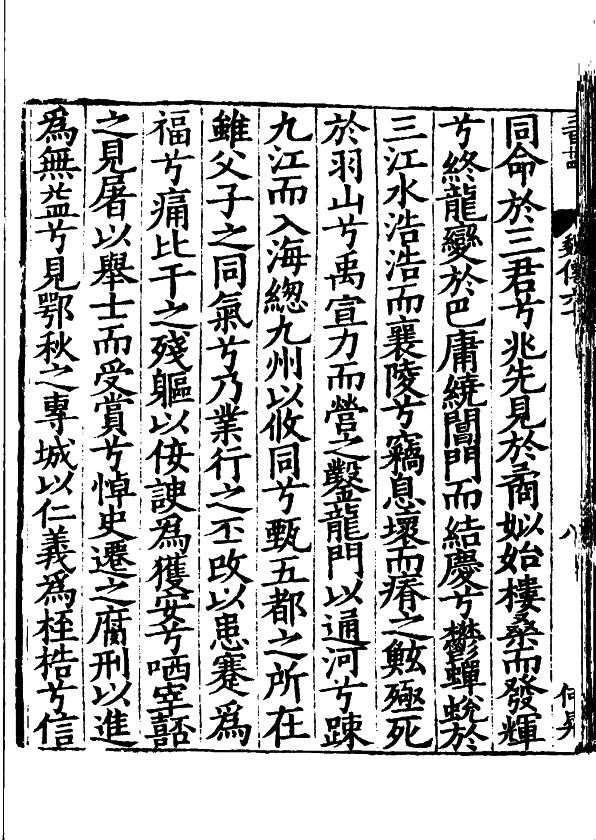 同命於三君兮兆先見於商姒始樓桑而發輝
兮終龍變於巴庸繞閶門而結慶兮鬱蟬蛻於
三江水浩浩而襄陵兮竊息壤而瘠之鮌殛死
於羽山兮禹宣力而營之鑿龍門以通河兮踈
九江而入海緫九州以攸同兮甄五都之所在
雖父子之同氣兮乃業行之丕改以患蹇為
福兮痛比干之殘軀以佞諛為獲安兮哂宰嚭
之見屠以舉士而受賞兮悼史遷之腐刑以進
為無益兮見鄂秋之專城以仁義為桎梏兮信